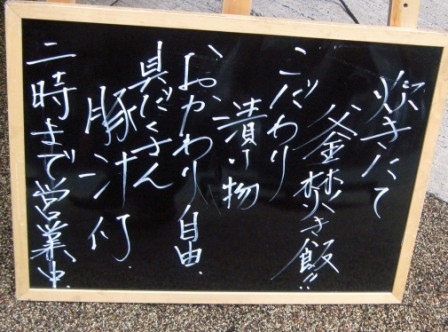 炊きたて
釜焚き飯!!
こだわり
漬け物
おかわり自由
具だくさん
豚汁付
二時まで営業中